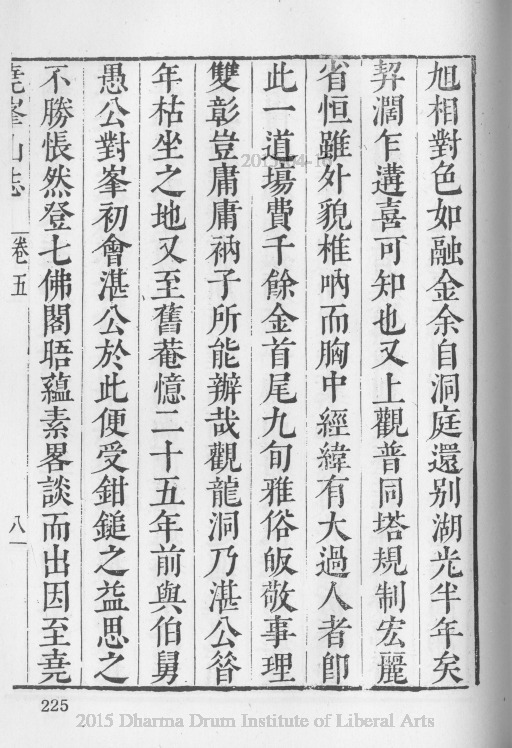 旭相對色如融金余自洞庭還别湖光半年矣
契濶乍遘喜可知也又上觀普同塔規制宏麗
省恒雖外貌椎吶而胸中經緯有大過人者卽
此一道場費千餘金首尾九旬雅俗皈敬事理
雙彰豈庸庸衲子所能辦哉觀龍洞乃湛公昝
年枯坐之地又至舊菴憶二十五年前與伯舅
愚公對峯初會湛公於此便受鉗鎚之益思之
不勝悵然登七佛閣晤蘊素畧談而出因至堯
堯峯山志 卷五 八
225
2015 Dharma Drum Institute of Liberal Arts